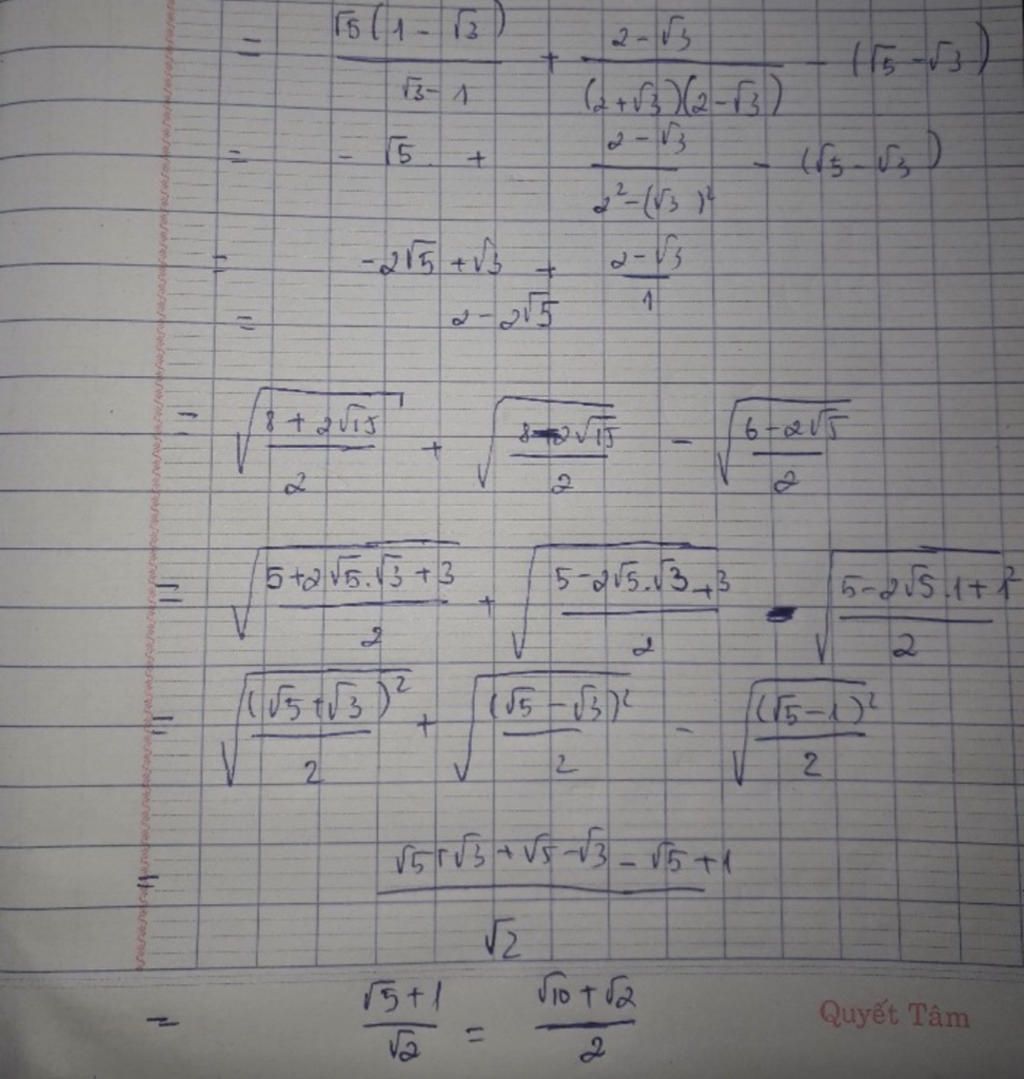 = √5(1 - √3)/(√3 - 1) + (2 - √3)/((2+√3)(2-√3)) - (√5 - √3)
= - √5 + (2 - √3)/(2² - (√3)²) - (√5 - √3)
= -2√5 + √3 + (2 - √3)/1
= 2 - 2√5
= √((8 + 2√15)/2) + √((8 - 2√15)/2) - √((6 - 2√5)/2)
= √((5 + 2√5.√3 + 3)/2) + √((5 - 2√5.√3 + 3)/2) - √((5 - 2√5.1 + 1²)/2)
= √((√5 + √3)²/2) + √((√5 - √3)²/2) - √((√5 - 1)²/2)
= (√5 + √3 + √5 - √3 - √5 + 1)/√2
= (√5 + 1)/√2 = (√10 + √2)/2
Quyết Tâm